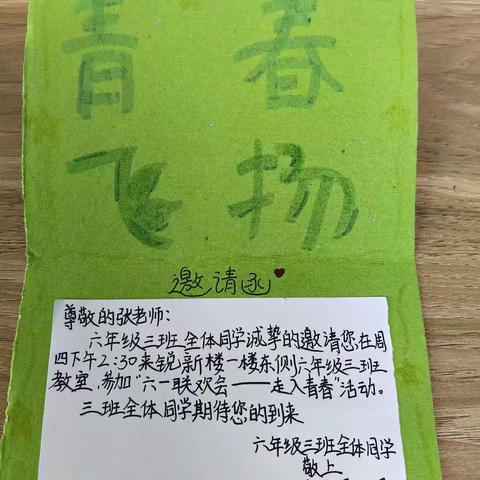 青 春
飞 扬
邀请函
尊敬的张老师:
六年级三班全体同学诚挚的邀请您在周
四下午2:30来锐新楼一楼东侧六年级三班
教室,参加“六一联欢会——走入青春”活动。
三班全体同学期待您的到来
六年级三班全体同学
敬上